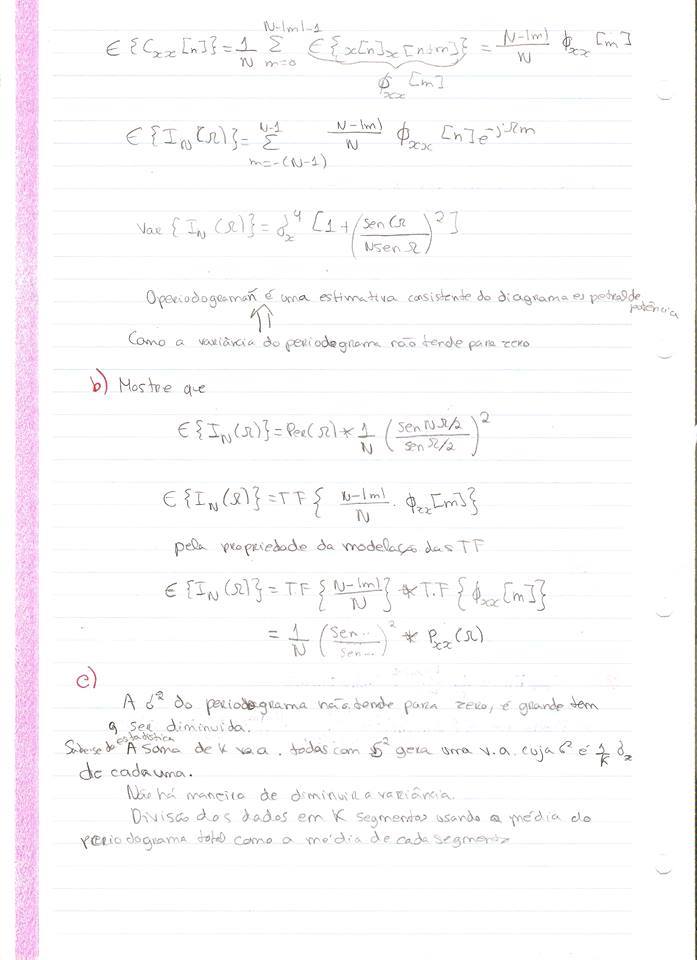 ∈{C_xx[n]} = 1/N Σ_{m=0}^{N-|m|-1} ∈{x[n]x[n+m]} = (N-|m|)/N ϕ_xx[m]
ϕ_xx[m]
∈{I_N(Ω)} = Σ_{m=-(N-1)}^{N-1} (N-|m|)/N ϕ_xx[n]e^{-jΩm}
Var{I_N(Ω)} = δ_x^4 [1+(sen(Ω/NsenΩ)^2]
O periodograma ñ é uma estimativa consistente do diagrama espetral de potência
Como a variância do periodograma não tende para zero
b) Mostre que
∈{I_N(Ω)} = Per(Ω) * 1/N (sen NΩ/2 / sen Ω/2)^2
∈{I_N(Ω)} = TF{(N-|m|)/N . ϕ_xx[m]}
pela propriedade da modelação das TF
∈{I_N(Ω)} = T.F{(N-|m|)/N} * T.F{ϕ_xx[m]}
= 1/N (sen... / sen...)^2 * P_xx(Ω)
c)
A б² do periodograma não tende para zero, é grande tem
q ser diminuida.
Sabe-se da estatística A soma de K v.a. todas com б² gera uma v.a. cuja б² é 1/K δ_x
de cada uma.
Não há maneira de diminuir a variância.
Divisão dos dados em K segmentos usando a média do
periodograma total como a média de cada segmento